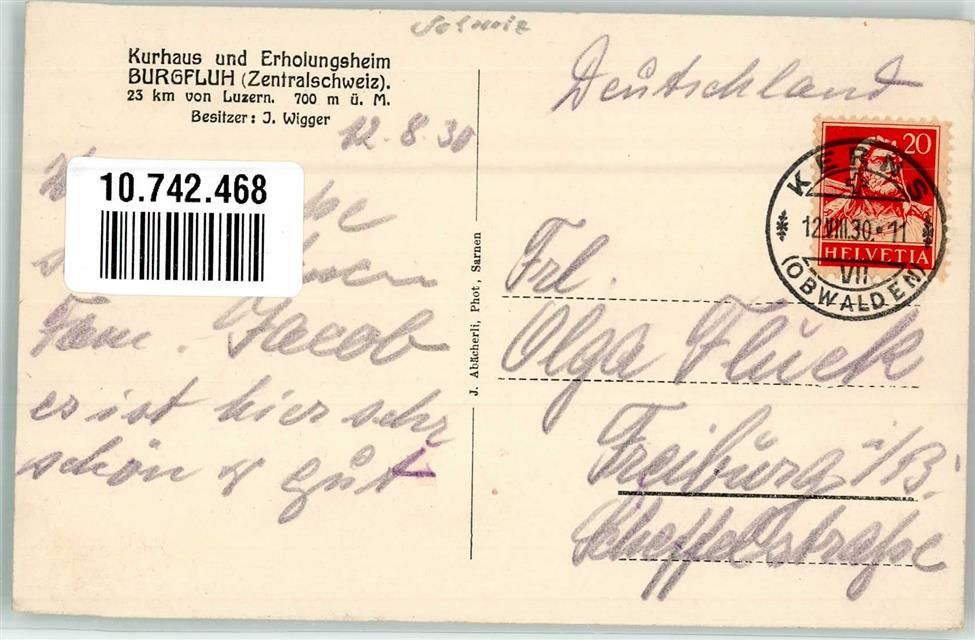 Schweiz
Kurhaus und Erholungsheim
BURGFLUH (Zentralschweiz).
23 km von Luzern. 700 m ü. M.
Besitzer: J. Wigger
12.8.30
10.742.468
Fam. Jacob
es ist hier sehr
schön & gut
J. Abächerli, Phot, Sarnen
Deutschland
20
HELVETIA
KERNS
12.VIII.30.-11
VII
(OBWALDEN)
Frl.
Olga Fluck
Freiburg i/B.
Scheffelstraße